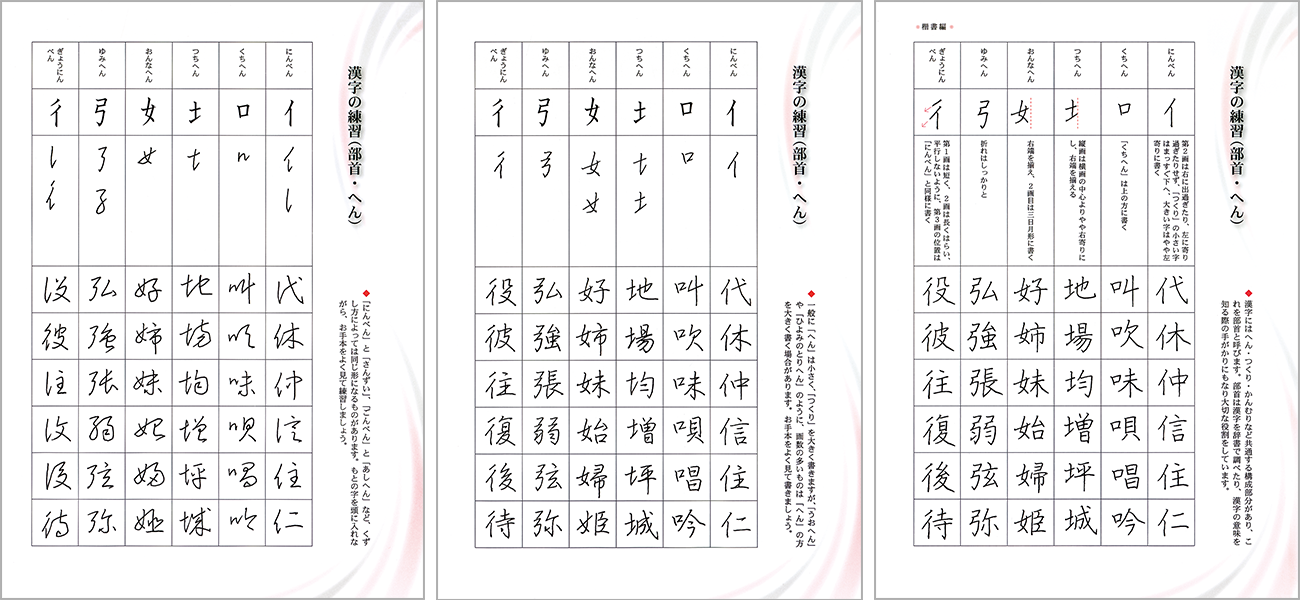 楷書編
漢字の練習(部首・へん)
◆漢字にはへん・つくり・かんむりなど共通する構成部分があり、こ
れを部首と呼びます。部首は漢字を辞書で調べたり、漢字の意味を
知る際の手がかりにもなり大切な役割をしています。
にんべん
亻
第2画は右に出過ぎたり、左に寄り
過ぎたりせず、「つくり」の小さい字
はまっすぐ下へ、大きい字はやや左
寄りに書く
代休仲信住仁
くちへん
口
「くちへん」は上の方に書く
叫吹味唄唱吟
つちへん
土
縦画は横画の中心よりやや右寄りに
し、右端を揃える
地場均増坪城
おんなへん
女
右端を揃え、2画目は三日月形に書く
好姉妹始婦姫
ゆみへん
弓
折れはしっかりと
弘強張弱弦弥
ぎょうにん
べん
彳
第1画は短く、2画は長くはらい、
平行しないように。第3画の位置は
「にんべん」と同様に書く
役彼往復後待
漢字の練習(部首・へん)
◆一般に「へん」は小さく、「つくり」を大きく書きますが、「うおへん」
や「ひよみのとりへん」のように、画数の多いものは「へん」の方
を大きく書く場合があります。お手本をよく見て書きましょう。
にんべん
亻
亻
代休仲信住仁
くちへん
口
口
叫吹味唄唱吟
つちへん
土
土土
地場均増坪城
おんなへん
女
女女
好姉妹始婦姫
ゆみへん
弓
弓
弘強張弱弦弥
ぎょうにん
べん
彳
彳
役彼往復後待
漢字の練習(部首・へん)
◆「にんべん」と「さんずい」、「ごんべん」と「あしへん」など、くず
し方によっては同じ形になるものがあります。もとの字を頭に入れな
がら、お手本をよく見て練習しましょう。
にんべん
亻
代休仲信住仁
くちへん
口
叫吹味唄唱吟
つちへん
土
地場均増坪城
おんなへん
女
好姉妹始婦姫
ゆみへん
弓
弘強張弱弦弥
ぎょうにん
べん
彳
役彼往復後待